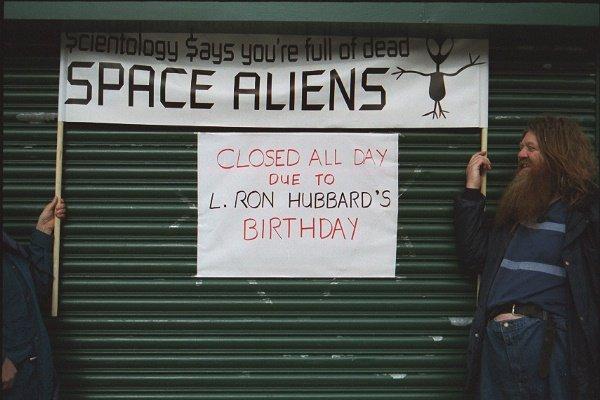 $cientology $ays you're full of dead
SPACE ALIENS
CLOSED ALL DAY
DUE TO
L. RON HUBBARD'S
BIRTHDAY